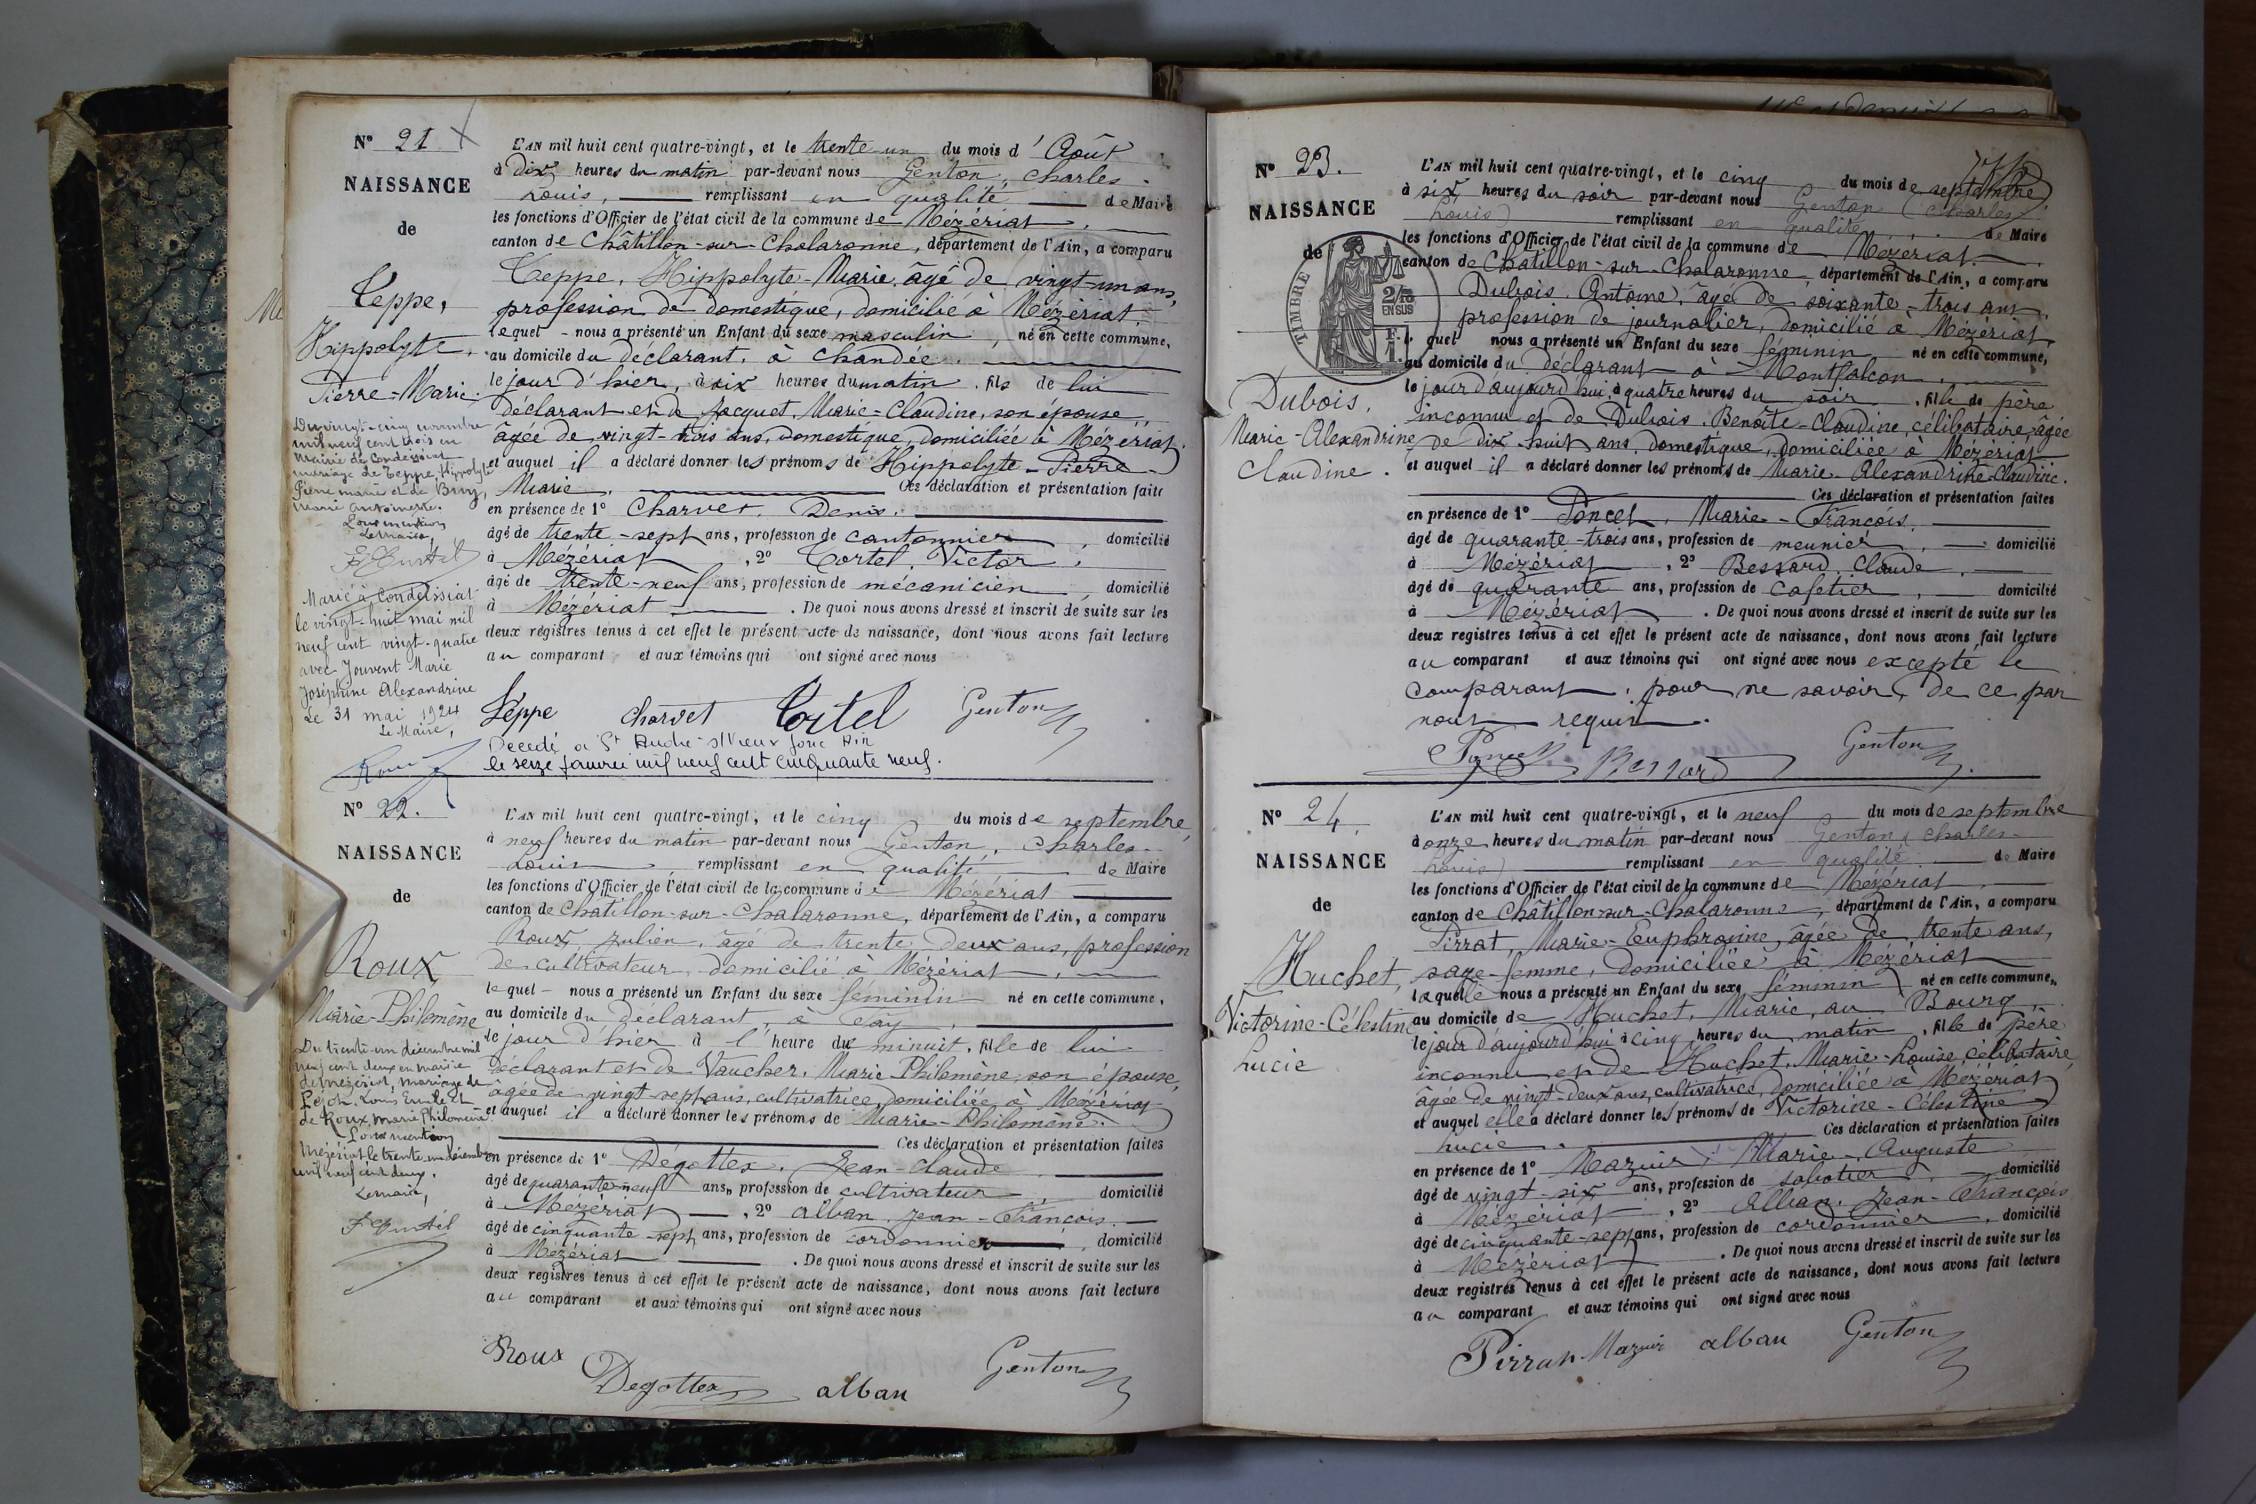 N° 21
NAISSANCE
de
Teppe,
Hippolyte,
Pierre-Marie.
Du vingt-cinq novembre
mil neuf cent trois en
mairie de Condeissiat
mariage de Teppe, Hippolyte
Pierre Marie et de Bruy,
Marie Antoinette.
Pour mention
Le maire,
Marié à Condeissiat
le vingt-huit mai mil
neuf cent vingt-quatre
avec Jouvent Marie
Joséphine Alexandrine
Le 31 mai 1924
Le Maire,
L'AN mil huit cent quatre-vingt, et le trente-un du mois d'Août
à dix heures du matin par-devant nous Genton, Charles-
Louis, remplissant en qualité de Maire
les fonctions d'Officier de l'état civil de la commune de Mézériat,
canton de Châtillon-sur-Chalaronne, département de l'Ain, a comparu
Teppe, Hippolyte-Marie, âgé de vingt-un ans,
profession de domestique, domicilié à Mézériat,
lequel nous a présenté un Enfant du sexe masculin, né en cette commune,
au domicile du déclarant, à Chandée,
le jour d'hier, à six heures du matin, fils de lui
déclarant et de Jacquet, Marie-Claudine, son épouse,
âgée de vingt-trois ans, domestique, domiciliée à Mézériat,
et auquel il a déclaré donner les prénoms de Hippolyte-Pierre-
Marie. Ces déclaration et présentation faites
en présence de 1° Charvet, Denis,
âgé de trente-sept ans, profession de cantonnier, domicilié
à Mézériat, 2° Tortel, Victor,
âgé de trente-neuf ans, profession de mécanicien, domicilié
à Mézériat. De quoi nous avons dressé et inscrit de suite sur les
deux registres tenus à cet effet le présent acte de naissance, dont nous avons fait lecture
au comparant et aux témoins qui ont signé avec nous
Teppe Charvet Tortel Genton
Decedé a St André s/Vieux Jonc Ain
le seize janvier mil neuf cent cinquante neuf.
N° 22.
NAISSANCE
de
Roux
Marie-Philomène
Du trente-un décembre mil
neuf cent deux en mairie
de Mézériat, mariage de
Louis Emile et
de Roux, Marie Philomène.
Pour mention
Mézériat le trente-un décembre
mil neuf cent deux.
Le maire,
L'AN mil huit cent quatre-vingt, et le cinq du mois de septembre,
à neuf heures du matin par-devant nous Genton, Charles-
Louis remplissant en qualité de Maire
les fonctions d'Officier de l'état civil de la commune de Mézériat
canton de Chatillon-sur-Chalaronne, département de l'Ain, a comparu
Roux, Julien, âgé de trente-deux ans, profession
de cultivateur, domicilié à Mézériat,
lequel nous a présenté un Enfant du sexe féminin né en cette commune,
au domicile du déclarant, à
le jour d'hier à l'heure de minuit, fille de lui
déclarant et de Vaucher, Marie Philomène, son épouse,
âgée de vingt-sept ans, cultivatrice, domiciliée à Mézériat
et auquel il a déclaré donner les prénoms de Marie-Philomène.
Ces déclaration et présentation faites
en présence de 1° Dégottex, Jean-Claude
âgé de quarante-neuf ans, profession de cultivateur, domicilié
à Mézériat, 2° Alban, Jean-François,
âgé de cinquante-sept ans, profession de cordonnier, domicilié
à Mézériat. De quoi nous avons dressé et inscrit de suite sur les
deux registres tenus à cet effet le présent acte de naissance, dont nous avons fait lecture
au comparant et aux témoins qui ont signé avec nous
Roux Degottex alban Genton
N° 23.
NAISSANCE
de
TIMBRE
2/10
EN SUS
Dubois,
Marie-Alexandrine
Claudine.
L'AN mil huit cent quatre-vingt, et le cinq du mois de septembre
à six heures du soir par-devant nous Genton (Charles
Louis) remplissant en qualité de Maire
les fonctions d'Officier de l'état civil de la commune de Mézériat.
canton de Chatillon-sur-Chalaronne, département de l'Ain, a comparu
Dubois, Antoine, âgé de soixante-trois ans,
profession de journalier, domicilié à Mézériat
lequel nous a présenté un Enfant du sexe féminin né en cette commune,
au domicile du déclarant à Montfalcon,
le jour d'aujourd'hui, à quatre heures du soir, fille de père
inconnu et de Dubois, Benoîte-Claudine, célibataire, âgée
de dix-huit ans, domestique, domiciliée à Mézériat
et auquel il a déclaré donner les prénoms de Marie-Alexandrine-Claudine.
Ces déclaration et présentation faites
en présence de 1° Poncet, Marie-François,
âgé de quarante-trois ans, profession de meunier, domicilié
à Mézériat, 2° Bessard, Claude,
âgé de quarante ans, profession de cafetier, domicilié
à Mézériat. De quoi nous avons dressé et inscrit de suite sur les
deux registres tenus à cet effet le présent acte de naissance, dont nous avons fait lecture
au comparant et aux témoins qui ont signé avec nous excepté le
comparant, pour ne savoir, de ce par
nous requis.
Poncet Bessard Genton
N° 24.
NAISSANCE
de
Huchet,
Victorine-Célestine
Lucie
L'AN mil huit cent quatre-vingt, et le neuf du mois de septembre
à onze heures du matin par-devant nous Genton (Charles-
Louis) remplissant en qualité de Maire
les fonctions d'Officier de l'état civil de la commune de Mézériat,
canton de Châtillon-sur-Chalaronne, département de l'Ain, a comparu
Pirrat, Marie-Euphrosine, âgée de trente ans,
sage-femme, domiciliée à Mézériat
laquelle nous a présenté un Enfant du sexe féminin né en cette commune,
au domicile de Huchet, Marie, au Bourg,
le jour d'aujourd'hui à cinq heures du matin, fille de père
inconnu et de Huchet, Marie-Louise, célibataire,
âgée de vingt-deux ans, cultivatrice, domiciliée à Mézériat
et auquel elle a déclaré donner les prénoms de Victorine-Célestine
Lucie. Ces déclaration et présentation faites
en présence de 1° Mazuir, Marie-Auguste
âgé de vingt-six ans, profession de sabotier, domicilié
à Mézériat, 2° Alban, Jean-François
âgé de cinquante-sept ans, profession de cordonnier, domicilié
à Mézériat. De quoi nous avons dressé et inscrit de suite sur les
deux registres tenus à cet effet le présent acte de naissance, dont nous avons fait lecture
au comparant et aux témoins qui ont signé avec nous
Pirrat Mazuir alban Genton